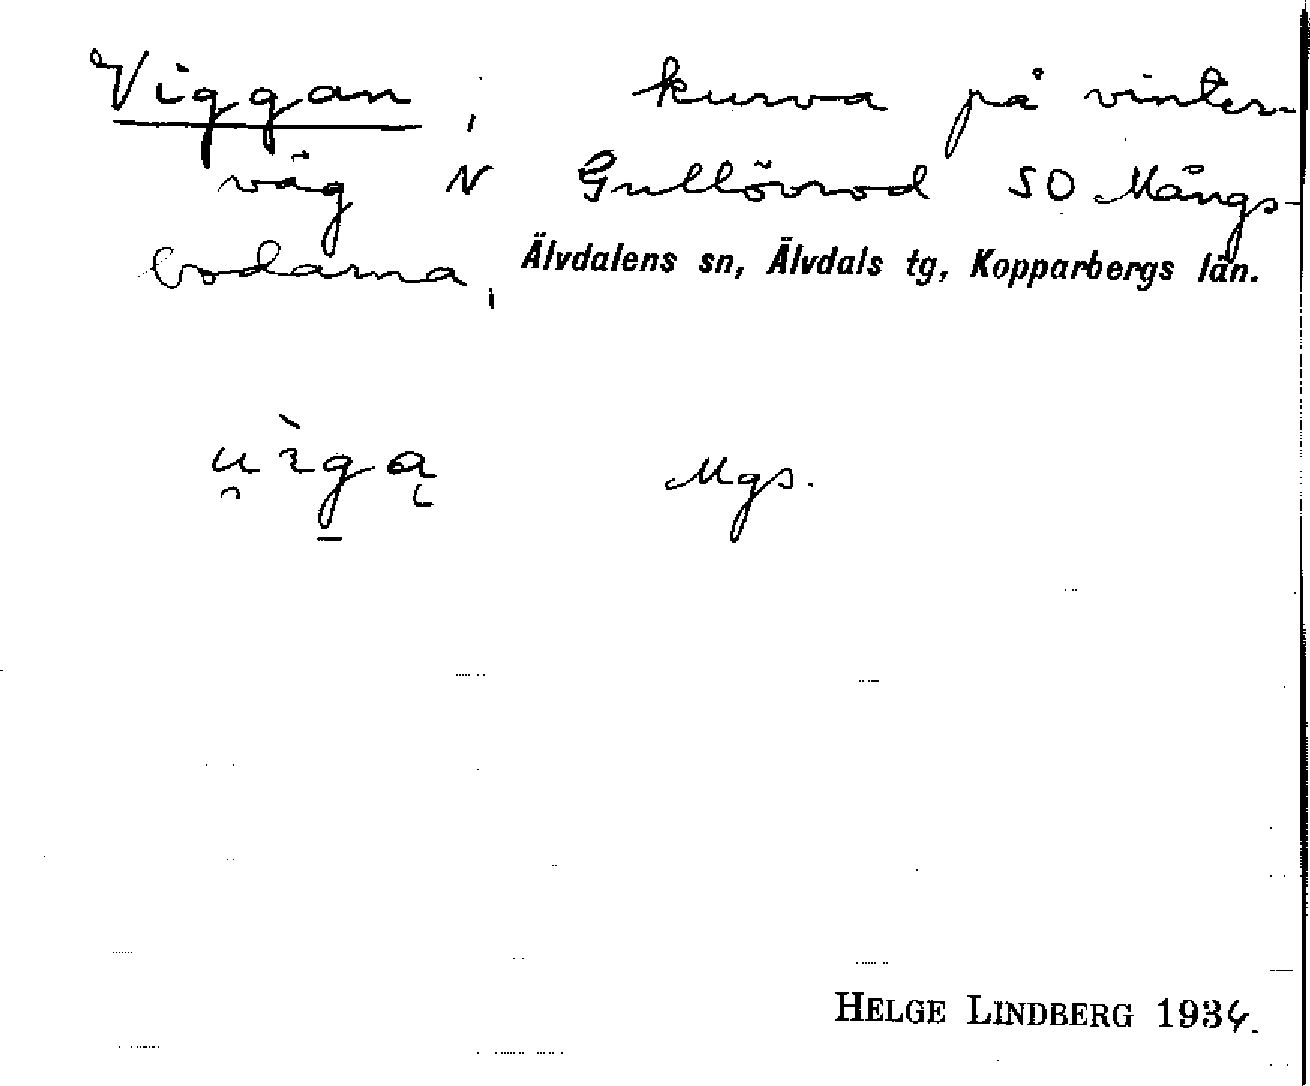 Viggan, kurva på vinter-
väg N Gullövrod SO Mångs-
bodarna, Älvdalens sn, Älvdals tg, Kopparbergs län.
Mgs.
HELGE LINDBERG 1934.